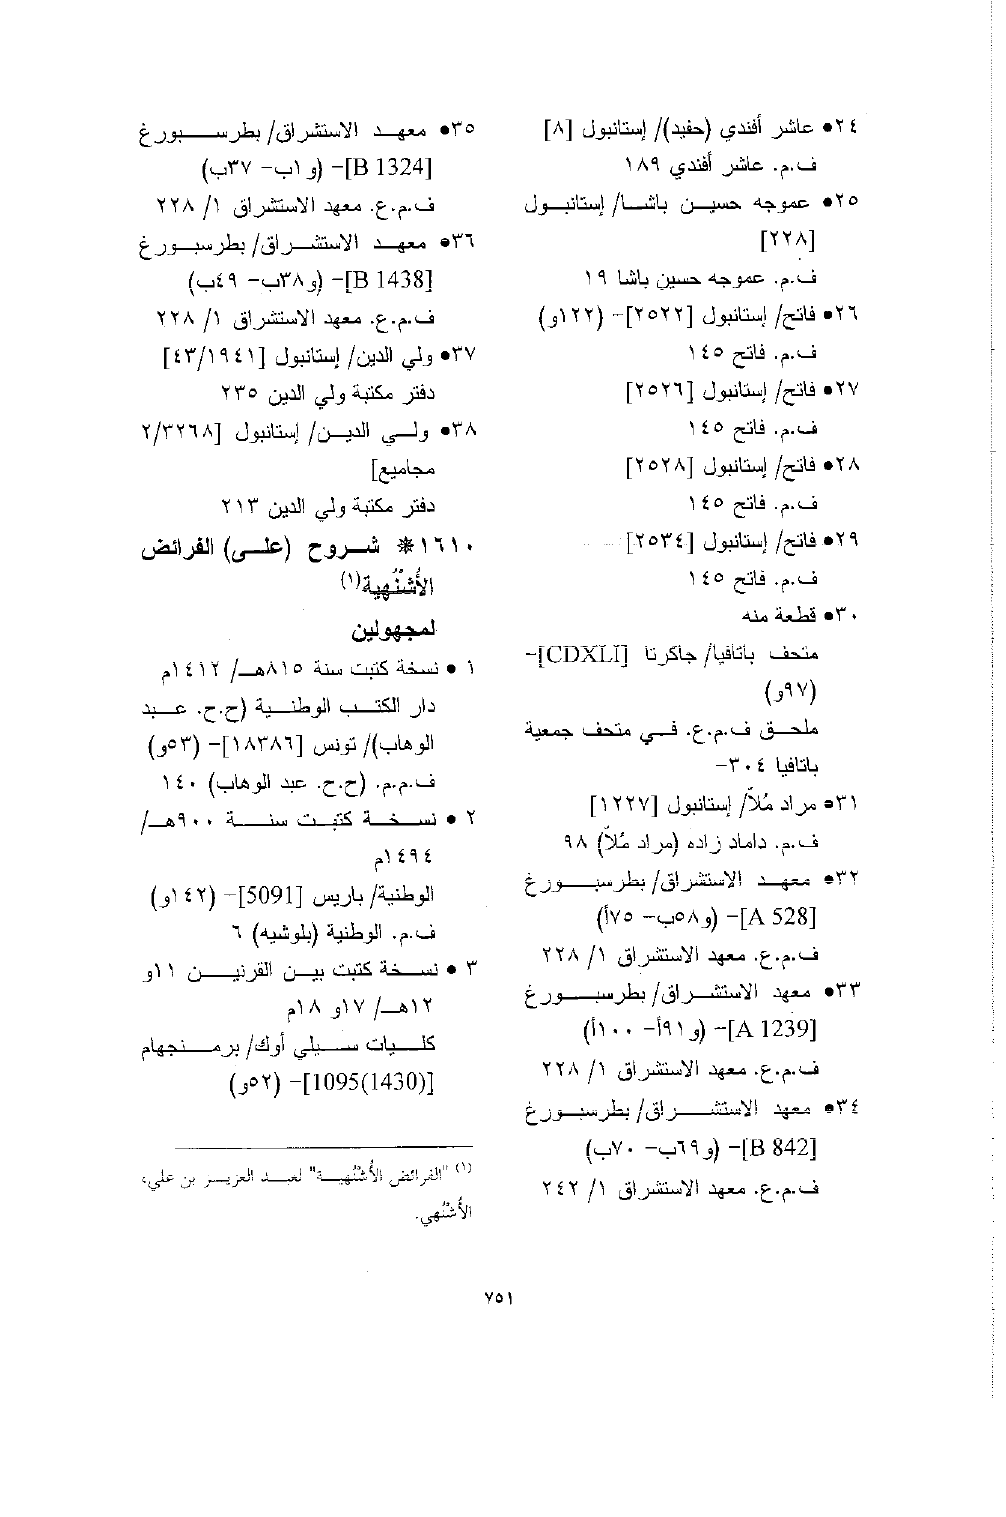 ٢٤• عاشر أفندي (حفيد)/ إستانبول [٨]
ف.م. عاشر أفندي ١٨٩
٢٥• عموجه حسين باشا/ إستانبول
[٢٢٨]
ف.م. عموجه حسين باشا ١٩
٢٦• فاتح/ إستانبول [٢٥٢٢]- (١٢٢و)
ف.م. فاتح ١٤٥
٢٧• فاتح/ إستانبول [٢٥٢٦]
ف.م. فاتح ١٤٥
٢٨• فاتح/ إستانبول [٢٥٢٨]
ف.م. فاتح ١٤٥
٢٩• فاتح/ إستانبول [٢٥٣٤]
ف.م. فاتح ١٤٥
٣٠• قطعة منه
متحف باتافيا/ جاكرتا [CDXLI]-
(٩٧و)
ملحق ف.م.ع. في متحف جمعية
باتافيا ٣٠٤-
٣١• مراد مُلاّ/ إستانبول [١٢٢٧]
ف.م. داماد زاده (مراد مُلاّ) ٩٨
٣٢• معهد الاستشراق/ بطرسبورغ
[A 528]- (و٥٨ب- ٧٥أ)
ف.م.ع. معهد الاستشراق ١/ ٢٢٨
٣٣• معهد الاستشراق/ بطرسبورغ
[A 1239]- (و٩١أ- ١٠٠أ)
ف.م.ع. معهد الاستشراق ١/ ٢٢٨
٣٤• معهد الاستشراق/ بطرسبورغ
[B 842]- (و٦٩ب- ٧٠ب)
ف.م.ع. معهد الاستشراق ١/ ٢٤٢
٣٥• معهد الاستشراق/ بطرسبورغ
[B 1324]- (و١ب- ٣٧ب)
ف.م.ع. معهد الاستشراق ١/ ٢٢٨
٣٦• معهد الاستشراق/ بطرسبورغ
[B 1438]- (و٣٨ب- ٤٩ب)
ف.م.ع. معهد الاستشراق ١/ ٢٢٨
٣٧• ولي الدين/ إستانبول [٤٣/١٩٤١]
دفتر مكتبة ولي الدين ٢٣٥
٣٨• ولي الدين/ إستانبول [٢/٣٢٦٨
مجاميع]
دفتر مكتبة ولي الدين ٢١٣
١٦١٠* شروح (على) الفرائض
الأُشنُهية(١)
لمجهولين
١ • نسخة كتبت سنة ٨١٥هـ/ ١٤١٢م
دار الكتب الوطنية (ح.ح. عبد
الوهاب)/ تونس [١٨٣٨٦]- (٥٣و)
ف.م.م. (ح.ح. عبد الوهاب) ١٤٠
٢ • نسخة كتبت سنة ٩٠٠هـ/
١٤٩٤م
الوطنية/ باريس [5091]- (١٤٢و)
ف.م. الوطنية (بلوشيه) ٦
٣ • نسخة كتبت بين القرنين ١١و
١٢هـ/ ١٧و ١٨م
كليات سيلي أوك/ برمنجهام
[1095(1430)]- (٥٢و)
(١) "الفرائض الأُشنُهية" لعبد العزيز بن علي،
الأُشنُهي.
٧٥١